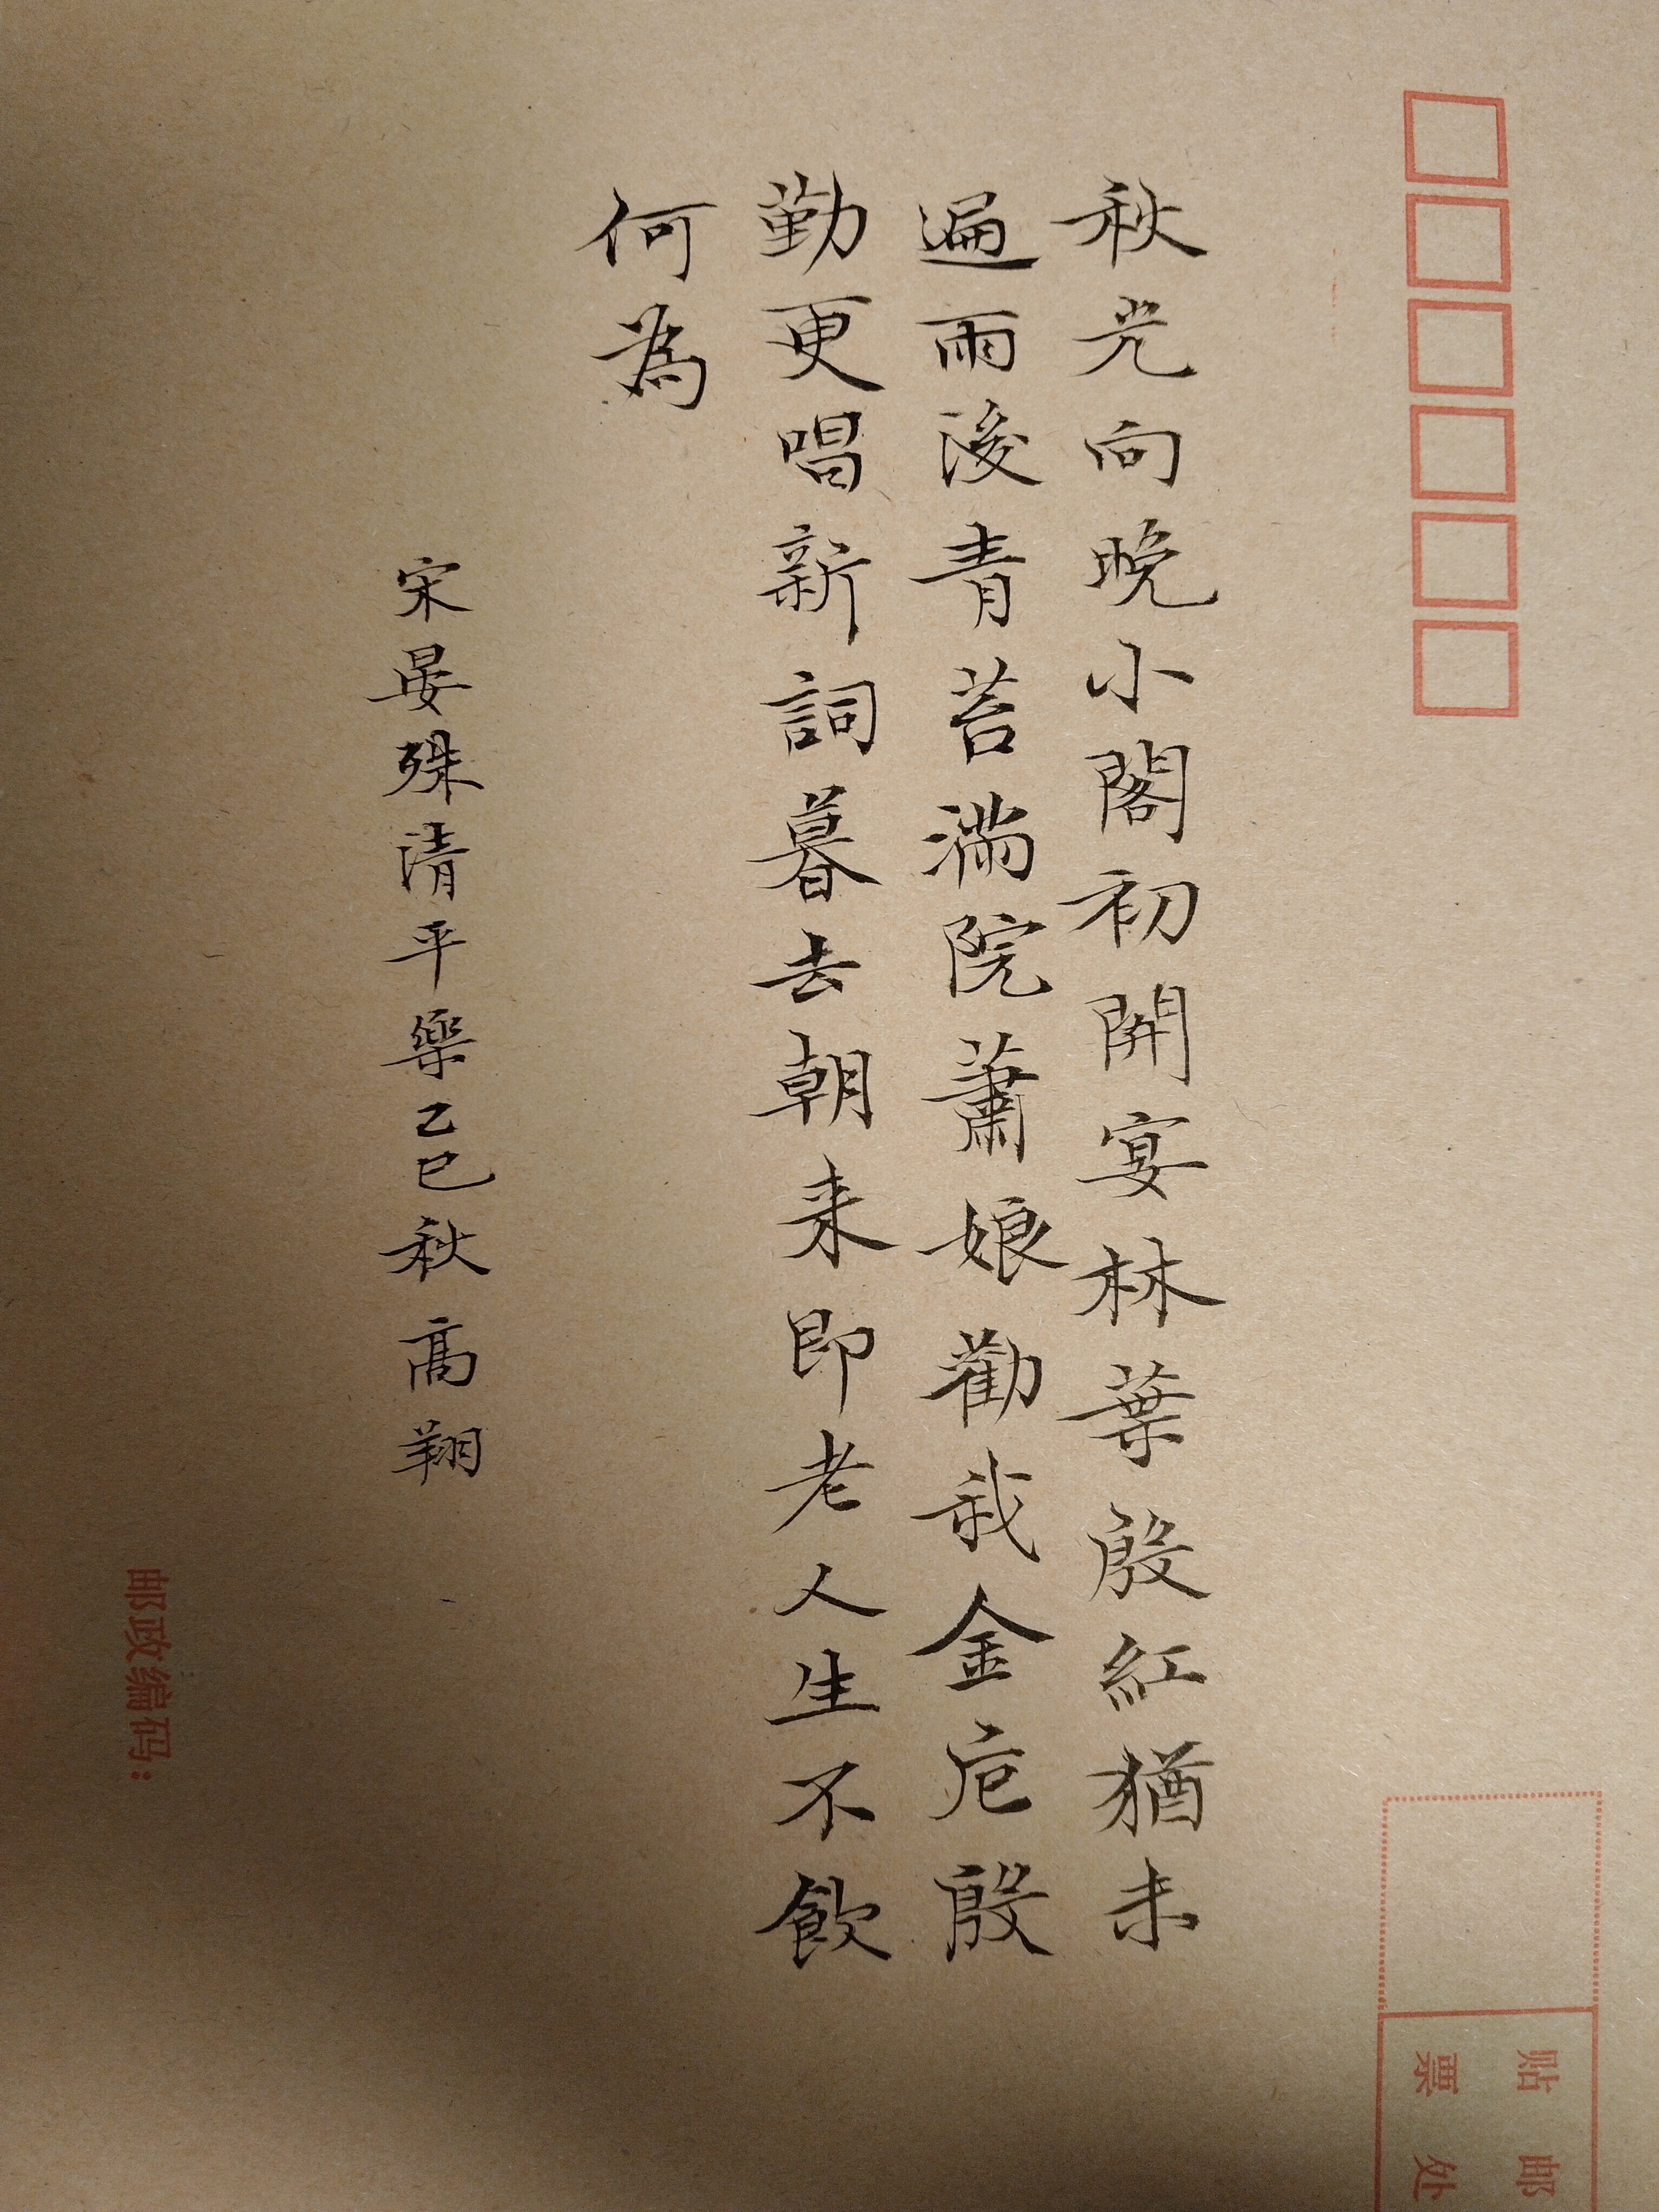 秋光向晚小閣初開宴林葉殷紅猶未
遍雨後青苔滿院蕭娘勸我金卮殷
勤更唱新詞暮去朝来即老人生不飲
何為
宋晏殊清平樂乙巳秋高翔
贴邮
票处
邮政编码：